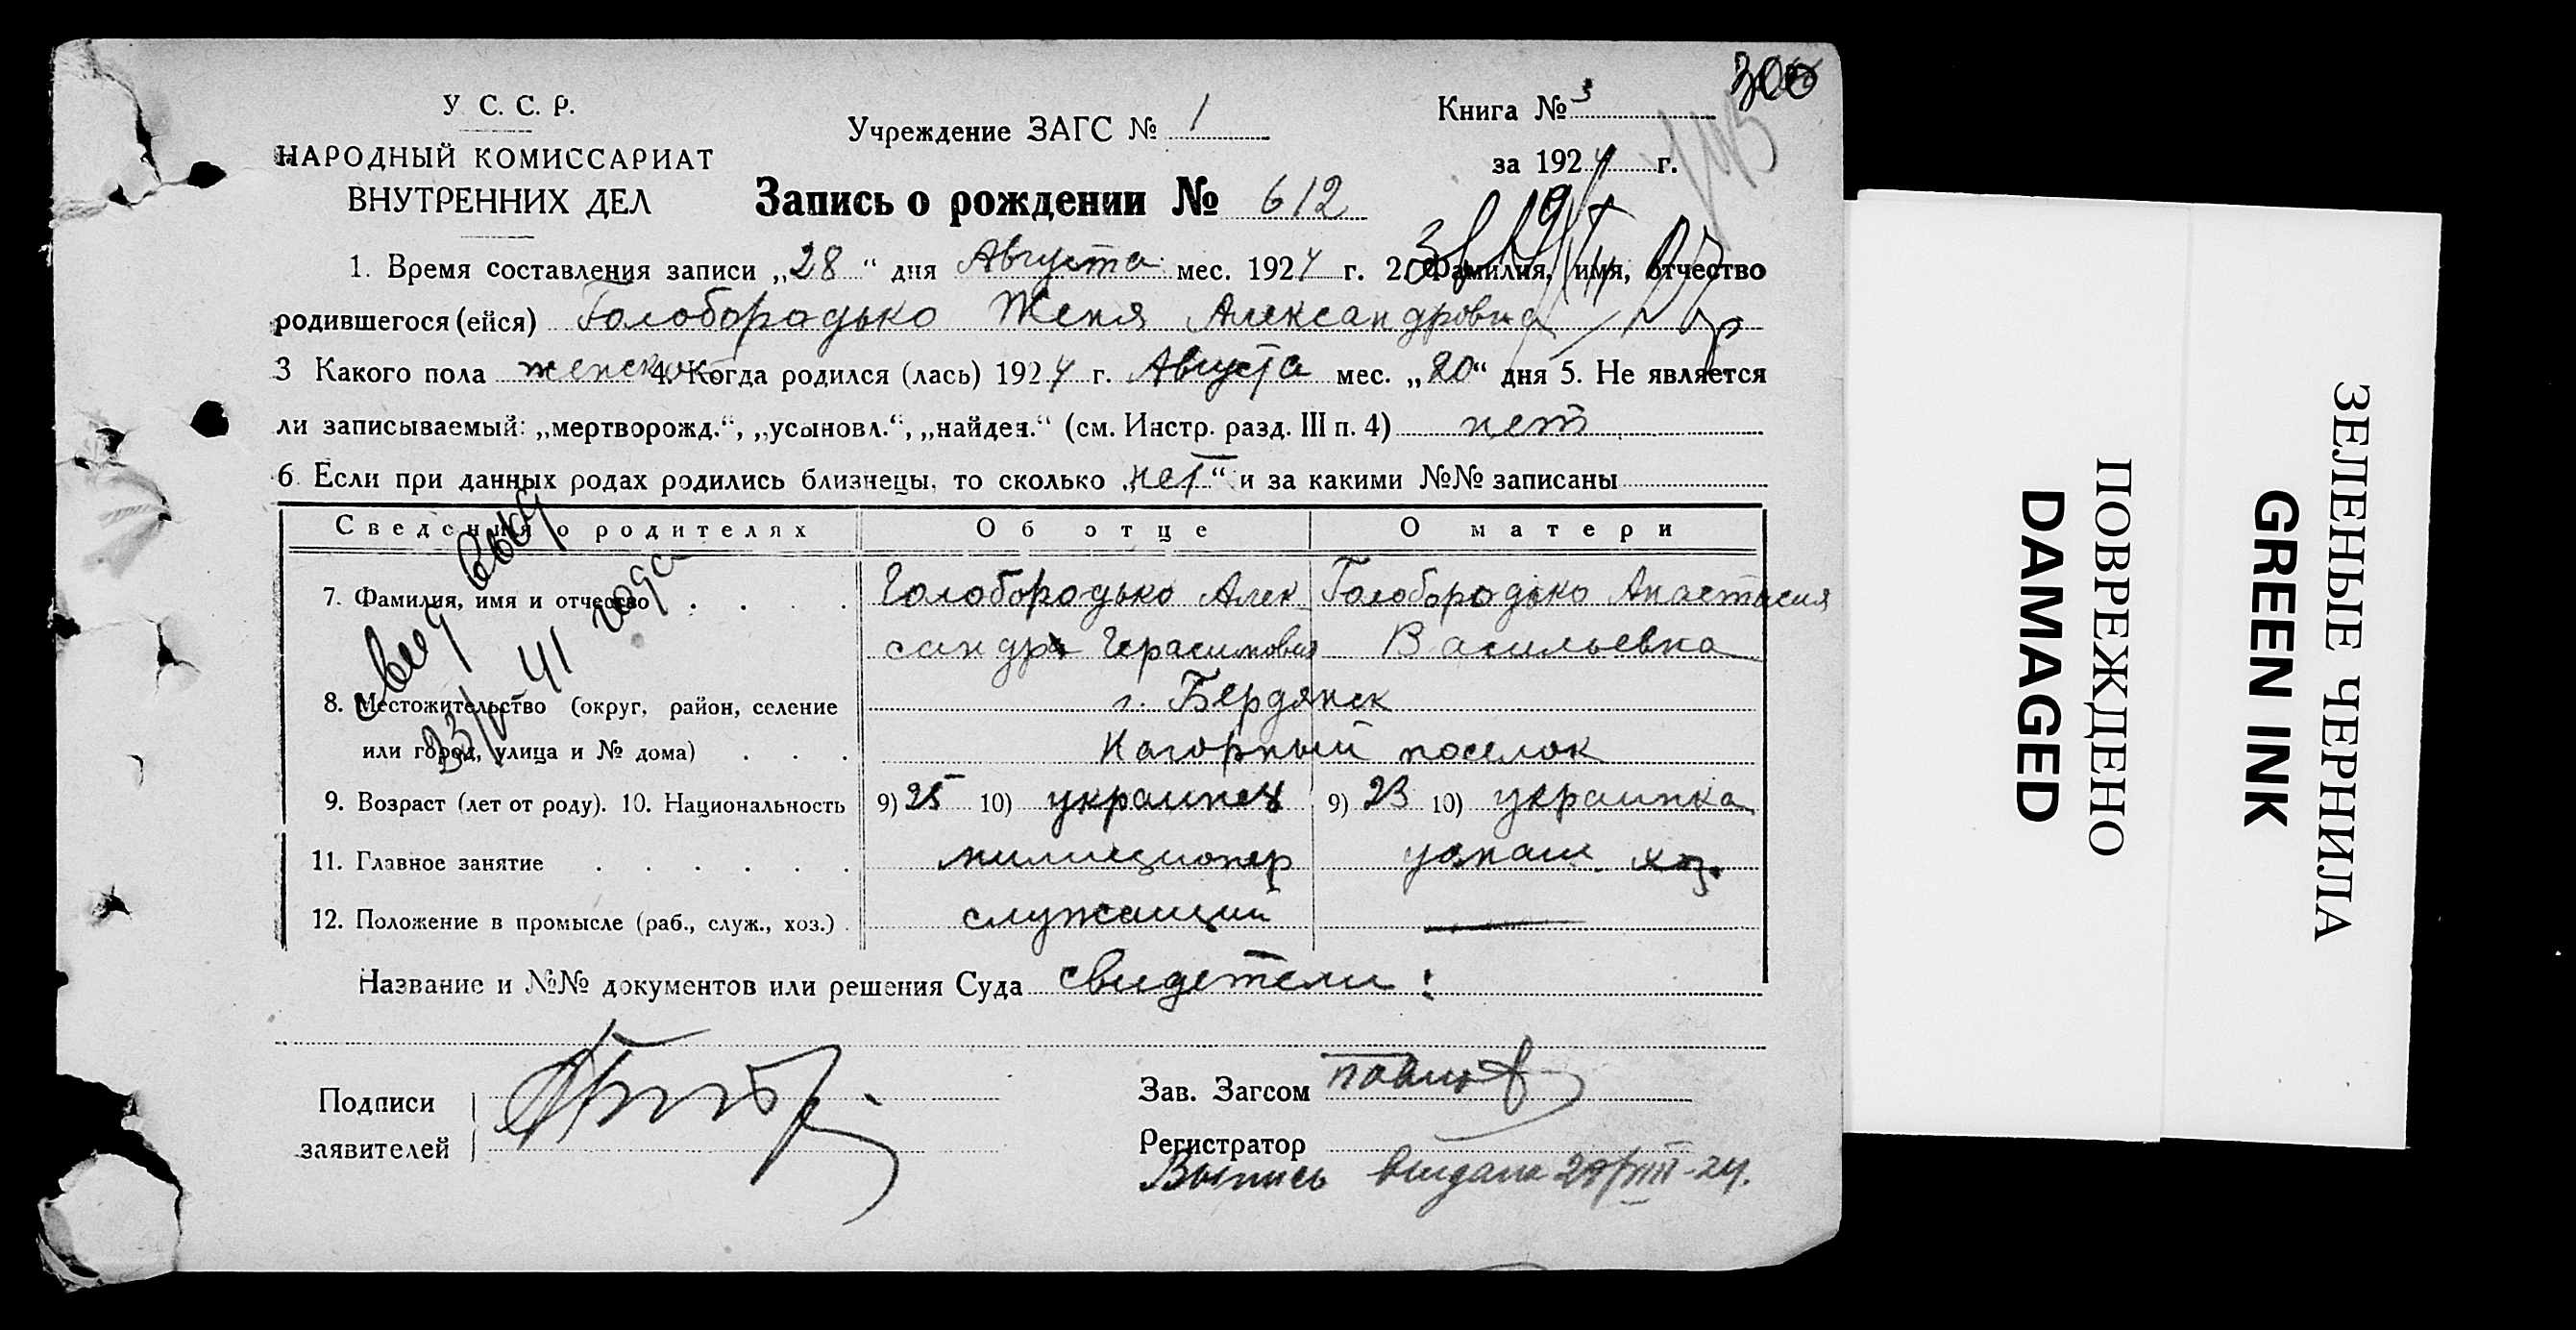 300
У. С. С. Р.
НАРОДНЫЙ КОМИССАРИАТ
ВНУТРЕННИХ ДЕЛ
Учреждение ЗАГС № 1
Книга № 3
за 1924 г.
Запись о рождении № 612
1. Время составления записи „28“ дня Августа мес. 1924 г. 2. Фамилия, имя, отчество
родившегося (ейся) Голобородько Женя Александровна
3 Какого пола женско 4. Когда родился (лась) 1924 г. Августа мес. „20“ дня 5. Не является
ли записываемый: „мертворожд.“, „усыновл.“, „найден.“ (см. Инстр. разд. III п. 4) нет
6. Если при данных родах родились близнецы, то сколько „нет“ и за какими №№ записаны
Сведения о родителях Об отце О матери
7. Фамилия, имя и отчество Голобородько Алек Голобородько Анастасия
сандр Герасимович Васильевна
8. Местожительство (округ, район, селение г. Бердянск
или город, улица и № дома) Нагорный поселок
9. Возраст (лет от роду). 10. Национальность 9) 25 10) украинец 9) 23 10) украинка
11. Главное занятие милиционер домаш. хоз.
12. Положение в промысле (раб., служ., хоз.) служащий
свид выд
41 года
Название и №№ документов или решения Суда свидетели:
Подписи
заявителей
Зав. Загсом Павлов
Регистратор
Выпись выдана 29/VIII-24.
ПОВРЕЖДЕНО
DAMAGED
ЗЕЛЕНЫЕ ЧЕРНИЛА
GREEN INK